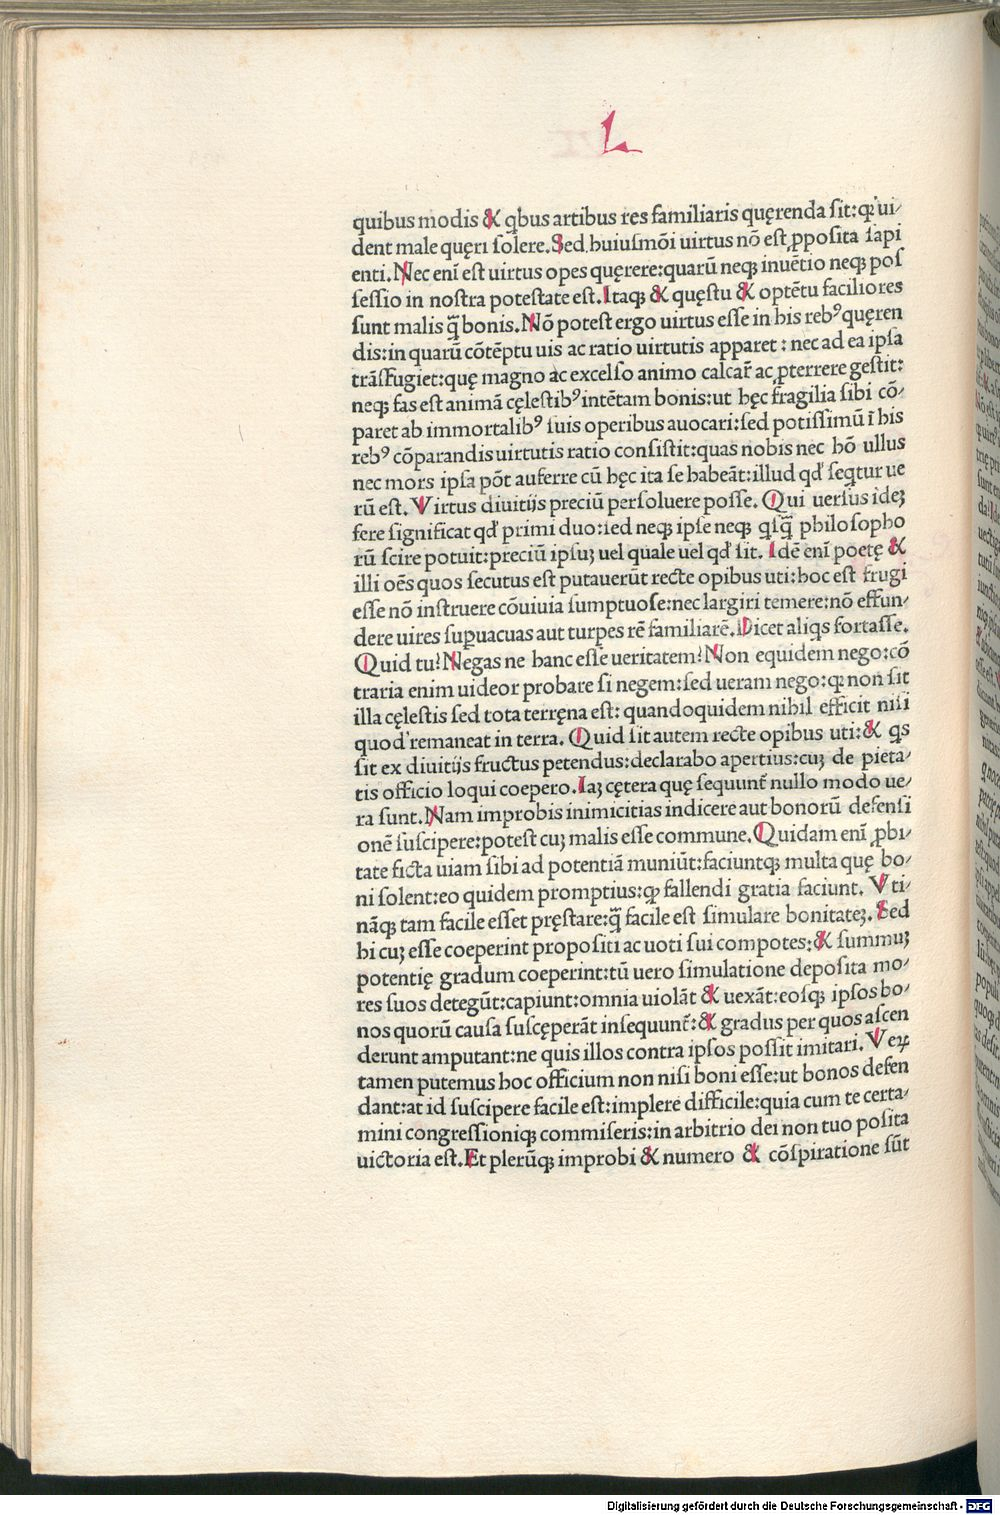 L
quibus modis & qbus artibus res familiaris quęrenda sit: ꝙ ui⸗
dent male quęri solere. Sed huiusmōi uirtus nō est ꝓposita sapi
enti. Nec enī est uirtus opes quęrere: quarū neqꝫ inuētio neqꝫ pos
sessio in nostra potestate est. Itaqꝫ & quęstu & optētu faciliores
sunt malis q̄̃ bonis. Nō potest ergo uirtus esse in his rebꝰ quęren
dis: in quarū cōtēptu uis ac ratio uirtutis apparet: nec ad ea ipsa
trāsfugiet: quę magno ac excelso animo calcar̃ ac ꝓterrere gestit:
neqꝫ fas est animā cęlestibꝰ intētam bonis: ut hęc fragilia sibi cō⸗
paret ab immortalibꝰ suis operibus auocari: sed potissimū ī his
rebꝰ cōparandis uirtutis ratio consistit: quas nobis nec hō ullus
nec mors ipsa pōt auferre cū hęc ita se habeāt: illud qđ seqtur ue
rū est. Virtus diuitijs preciū persoluere posse. Qui uersus ideꝫ
fere significat qđ primi duo: sed neqꝫ ipse neqꝫ qsq̄̃ philosopho
rū scire potuit: preciū ipsuꝫ uel quale uel qđ sit. Idē enī poetę &
illi oēs quos secutus est putauerūt recte opibus uti: hoc est frugi
esse nō instruere cōuiuia sumptuose: nec largiri temere: nō effun⸗
dere uires suꝑuacuas aut turpes rē familiarē. Dicet aliqs fortasse.
Quid tu? Negas ne hanc esse ueritatem? Non equidem nego: cō
traria enim uideor probare si negem: sed ueram nego: ꝙ non sit
illa cęlestis sed tota terręna est: quandoquidem nihil efficit nisi
quod remaneat in terra. Quid sit autem recte opibus uti: & qs
sit ex diuitijs fructus petendus: declarabo apertius: cuꝫ de pieta⸗
tis officio loqui coepero. Iaꝫ cętera quę sequunt̃ nullo modo ue⸗
ra sunt. Nam improbis inimicitias indicere aut bonorū defensi
onē suscipere: potest cuꝫ malis esse commune. Quidam enī ꝓbi⸗
tate ficta uiam sibi ad potentiā muniūt: faciuntqꝫ multa quę bo⸗
ni solent: eo quidem promptius: ꝙ fallendi gratia faciunt. Vti⸗
nāqꝫ tam facile esset pręstare: q̄̃ facile est simulare bonitateꝫ. Sed
hi cuꝫ esse coeperint propositi ac uoti sui compotes: & summuꝫ
potentię gradum coeperint: tū uero simulatione deposita mo⸗
res suos detegūt: capiunt: omnia uiolāt & uexāt: eosqꝫ ipsos bo⸗
nos quorū causa suscęperāt insequunt̃: & gradus per quos ascen
derunt amputant: ne quis illos contra ipsos possit imitari. Veꝝ
tamen putemus hoc officium non nisi boni esse: ut bonos defen
dant: at id suscipere facile est: implere difficile: quia cum te certa⸗
mini congressioniqꝫ commiseris: in arbitrio dei non tuo posita
uictoria est. Et plerūqꝫ improbi & numero & cōspiratione sūt
Digitalisierung gefördert durch die Deutsche Forschungsgemeinschaft - DFG